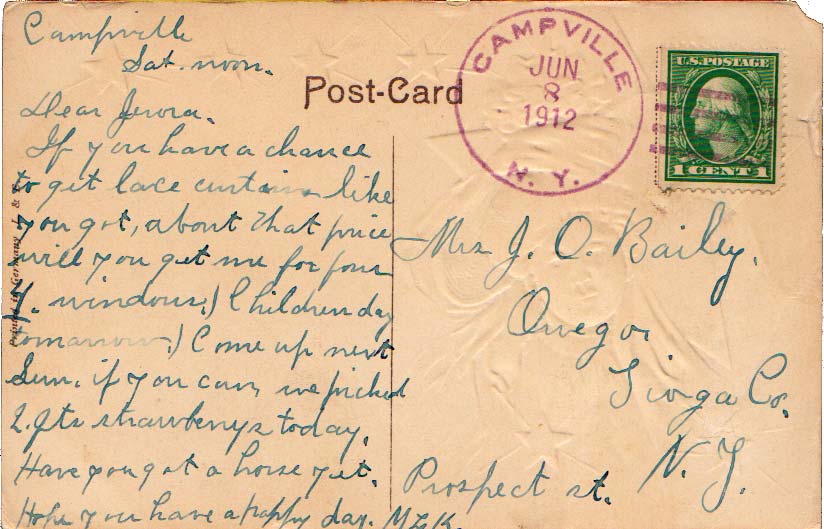 Campville
Sat. noon.
Dear
If you have a chance
to get lace curtains like
you got, about that price
will you get me for four
4. windows.) Children day
tomarrow.) Come up next
Sun. if you can, we picked
2. qts strawberrys today.
Have you got a horse yet.
Hope you have a happy day. M.L.K.
Post-Card
CAMPVILLE
JUN
8
1912
N. Y.
U.S. POSTAGE
1 CENT 1
Mrs J. O. Bailey.
Owego
Tioga Co.
N. Y.
Prospect st.
Printed in Germany